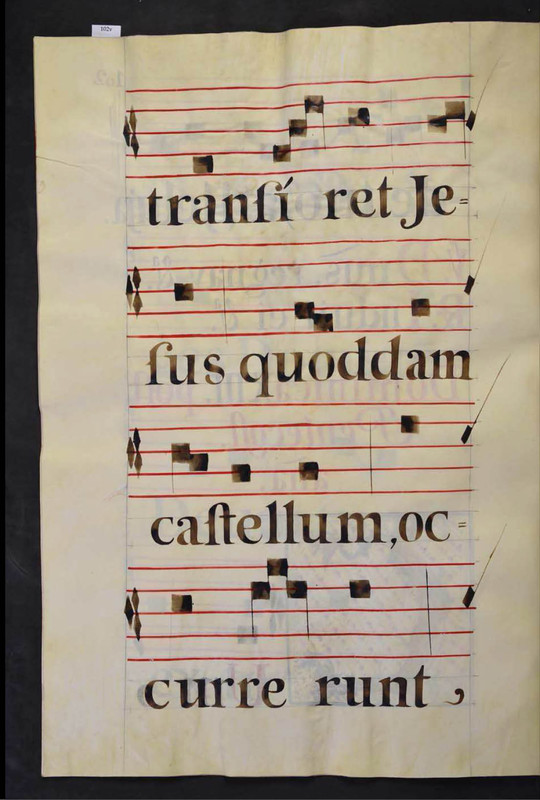 102v
tranſí ret Je=
ſus quoddam
caſtellum, oc=
curre runt,